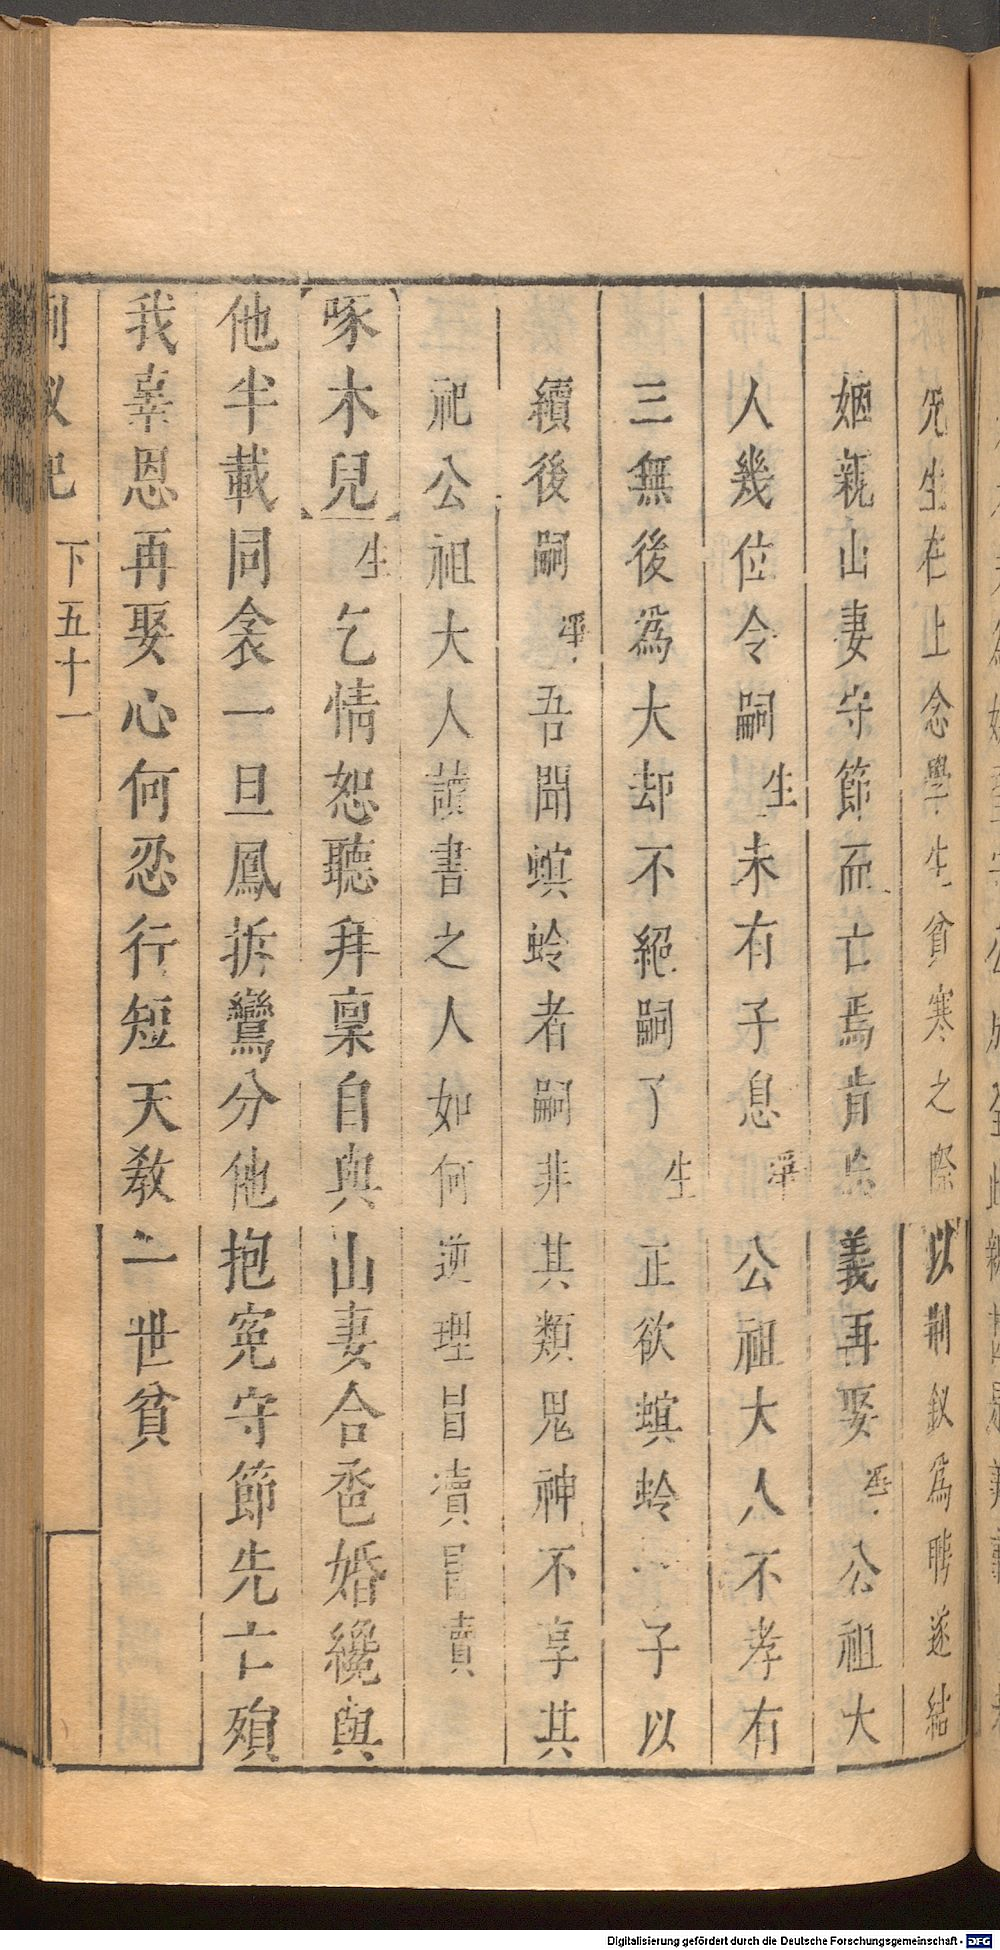 先生在上念學生貧寒之際以荆釵爲聘遂結
姻親山妻守節而亡焉肯義再娶淨公祖大
人幾位令嗣生未有子息淨公祖大人不孝有
三無後爲大却不絕嗣了生正欲螟蛉一子以
續後嗣淨吾聞螟蛉者嗣非其類鬼神不享其
祀公祖大人讀書之人如何逆理冒瀆冒賣
啄木兒生乞情恕聽拜稟自與山妻合卺婚纔與
他半載同衾一旦鳳拆鸞分他抱寃守節先亡殞
我辜恩再娶心何忍行短天教一世貧
下五十一
Digitalisierung gefördert durch die Deutsche Forschungsgemeinschaft - DFG